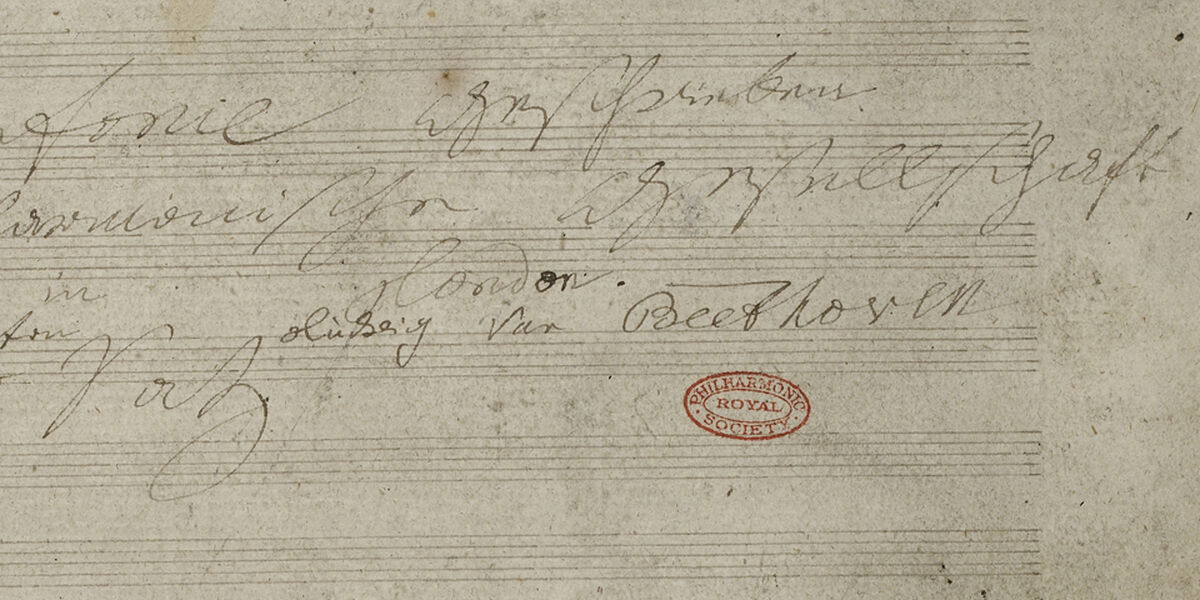 fonie Geschrieben
harmonische Gesellschaft
in London.
ten Ludwig van Beethoven
Satz
PHILHARMONIC
ROYAL
SOCIETY